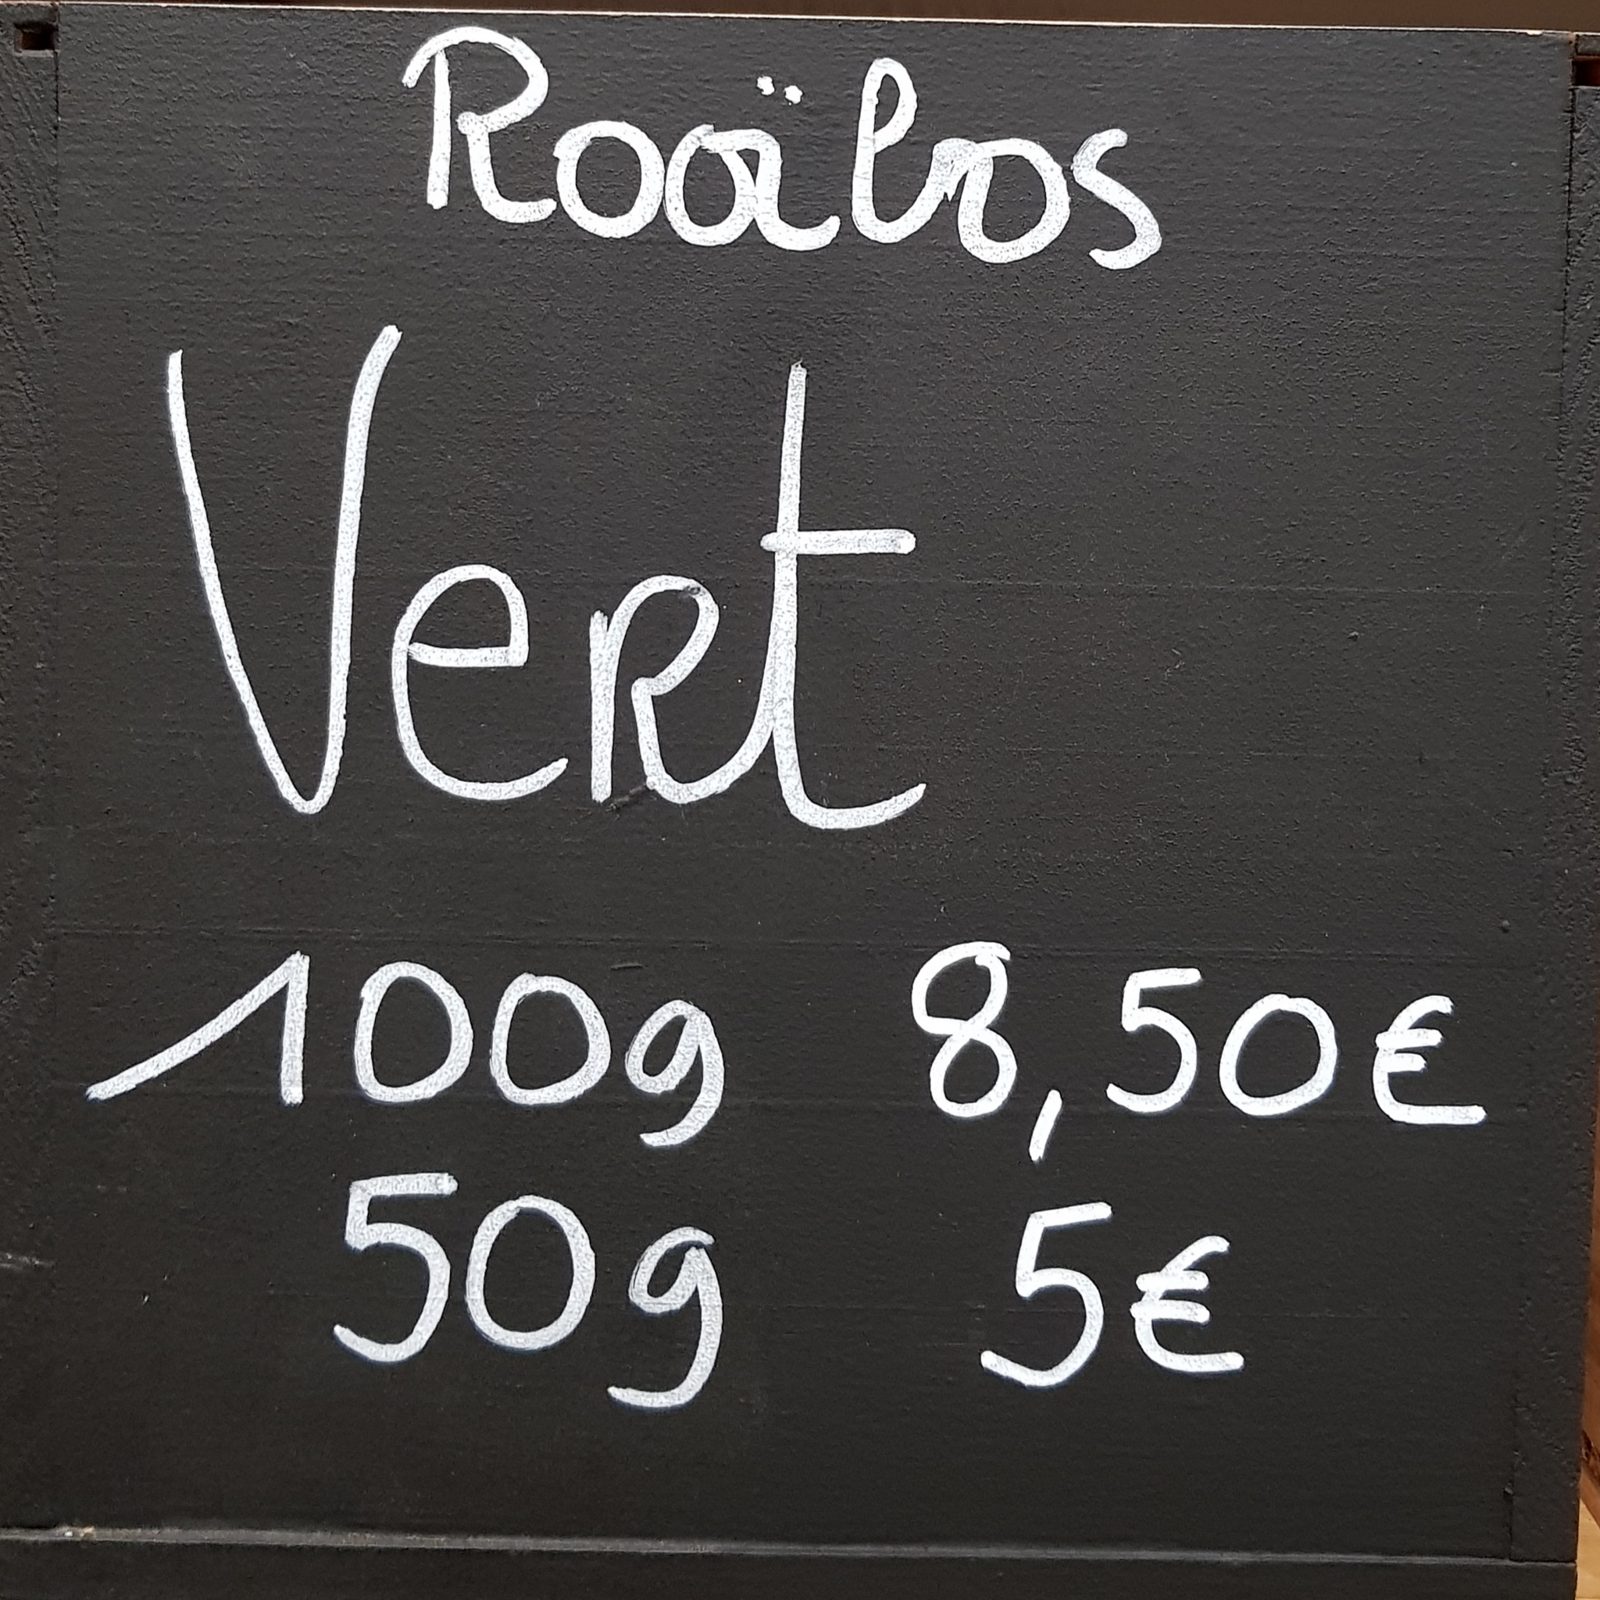 Rooïbos
Vert
100g 8,50€
50g 5€